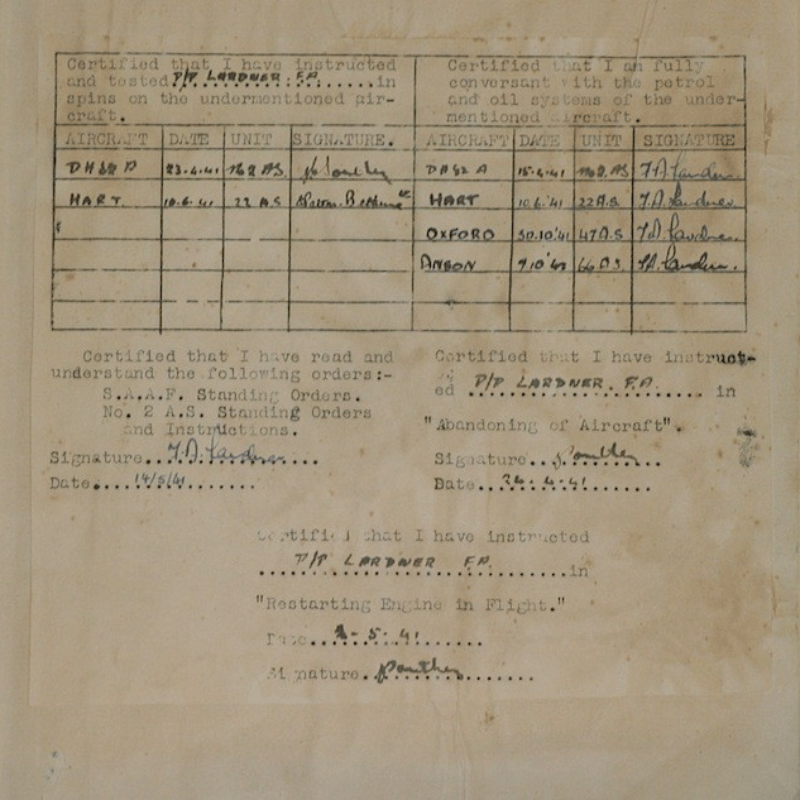 Certified that I have instructed
and tested P/P LARDNER. F.A. in
spins on the undermentioned air-
craft.
AIRCRAFT DATE UNIT SIGNATURE.
DH82 A 23.4.41 A.S
HART 10.6.41 22 A.S
Certified that I am fully
conversant with the petrol
and oil systems of the under-
mentioned aircraft.
AIRCRAFT DATE UNIT SIGNATURE
DH82 A 15.4.41 A.S F.A. Lardner.
HART 10.6.'41 22 A.S F.A. Lardner.
OXFORD 30.10'41 47 A.S F.A. Lardner.
ANSON 66 A.S. F.A. Lardner.
Certified that I have read and
understand the following orders:-
S.A.A.F. Standing Orders.
No. 2 A.S. Standing Orders
and Instructions.
Signature.. F.A. Lardner...
Date.... 14/5/41........
Certified that I have instruct-
ed P/P LARDNER. F.A. in
"Abandoning of Aircraft".
Signature...
Date... 24.4.41...
Certified that I have instructed
P/P LARDNER F.A.
in
"Restarting Engine in Flight."
Date... 2-5-41......
Signature..